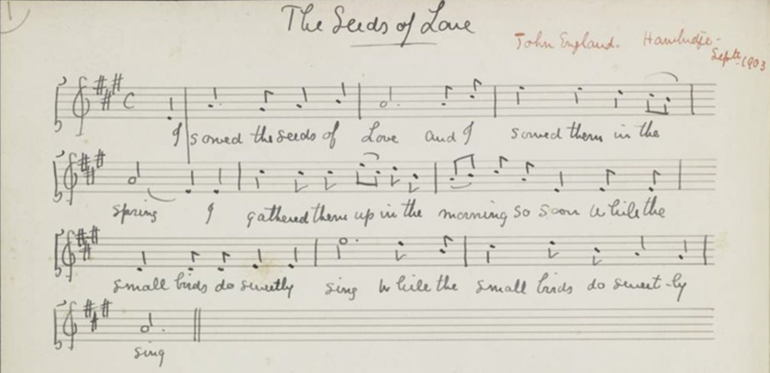 1
The Seeds of Love
John England. Hambridge -
Septr 1903
C
I sowed the seeds of Love and I sowed them in the
spring I gathered them up in the morning so soon While the
small birds do sweetly sing While the small birds do sweet-ly
sing